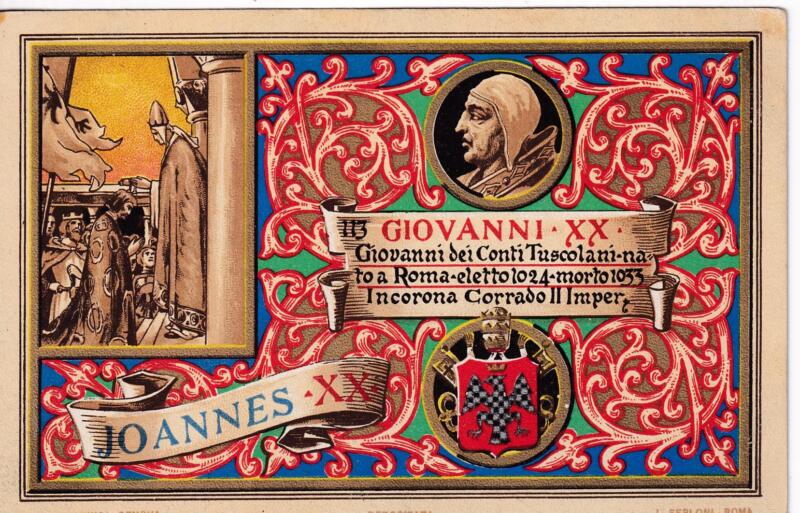 113 GIOVANNI · XX ·
Giovanni dei Conti Tuscolani-na-
to a Roma-eletto 1024-morto 1033
Incorona Corrado II Imper.
JOANNES · XX
GENOVA
DEPOSITATA
ROMA